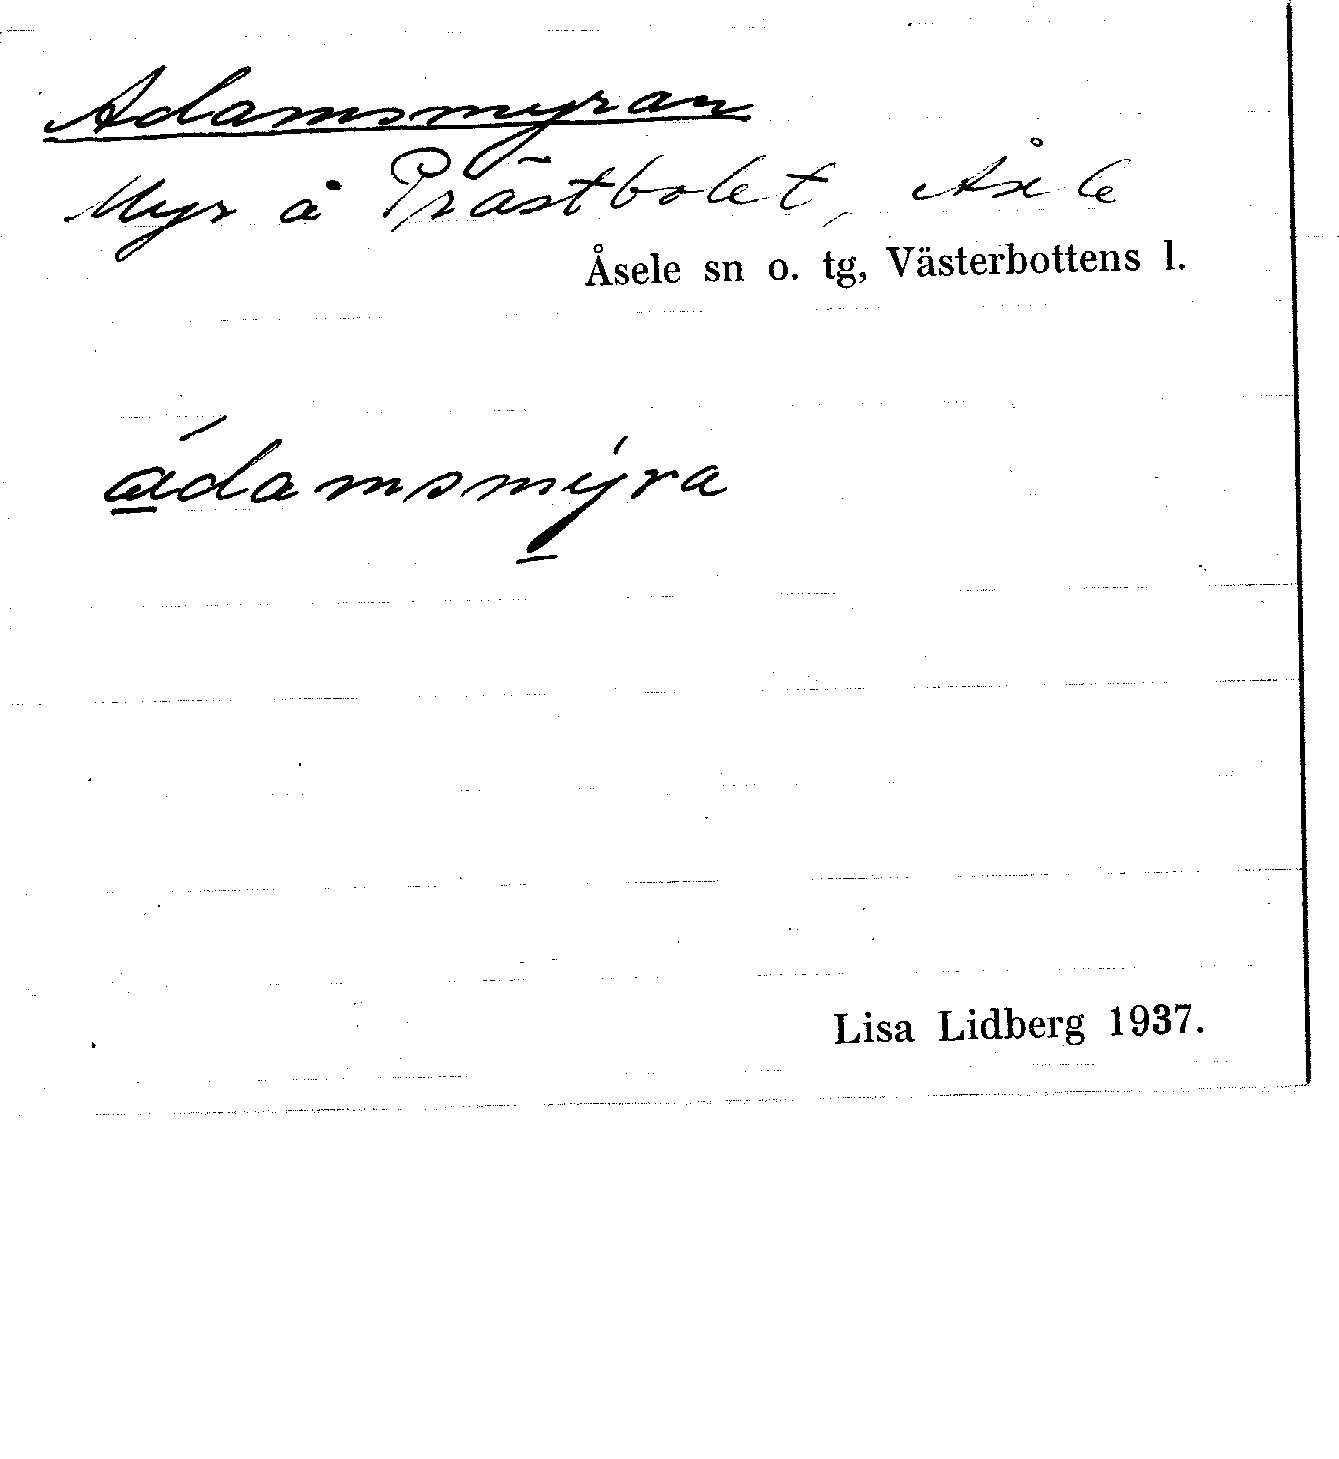 Adamsmyran
Myr å Prästbolet, Åsele
Åsele sn o. tg, Västerbottens l.
ádamsmýra
Lisa Lidberg 1937.